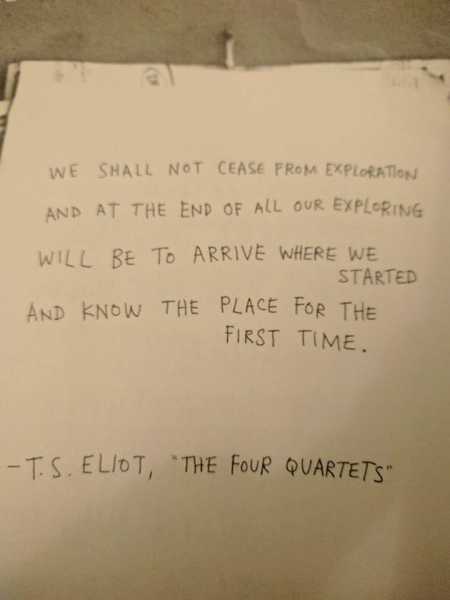 WE SHALL NOT CEASE FROM EXPLORATION
AND AT THE END OF ALL OUR EXPLORING
WILL BE TO ARRIVE WHERE WE
STARTED
AND KNOW THE PLACE FOR THE
FIRST TIME.
-T.S. ELIOT, "THE FOUR QUARTETS"